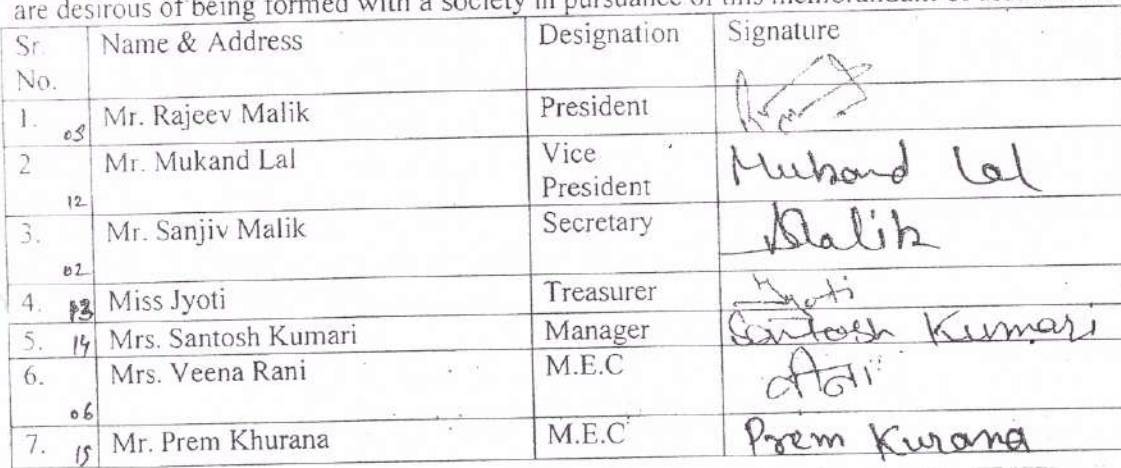 are desirous of being formed with a society in pursuance of this memorandum of
Sr. No. Name & Address Designation Signature
1. 03 Mr. Rajeev Malik President
2 12 Mr. Mukand Lal Vice President Mukand Lal
3. 02 Mr. Sanjiv Malik Secretary SMalik
4. 13 Miss Jyoti Treasurer Jyoti
5. 14 Mrs. Santosh Kumari Manager Santosh Kumari
6. 06 Mrs. Veena Rani M.E.C वीना
7. 15 Mr. Prem Khurana M.E.C Prem Kurana